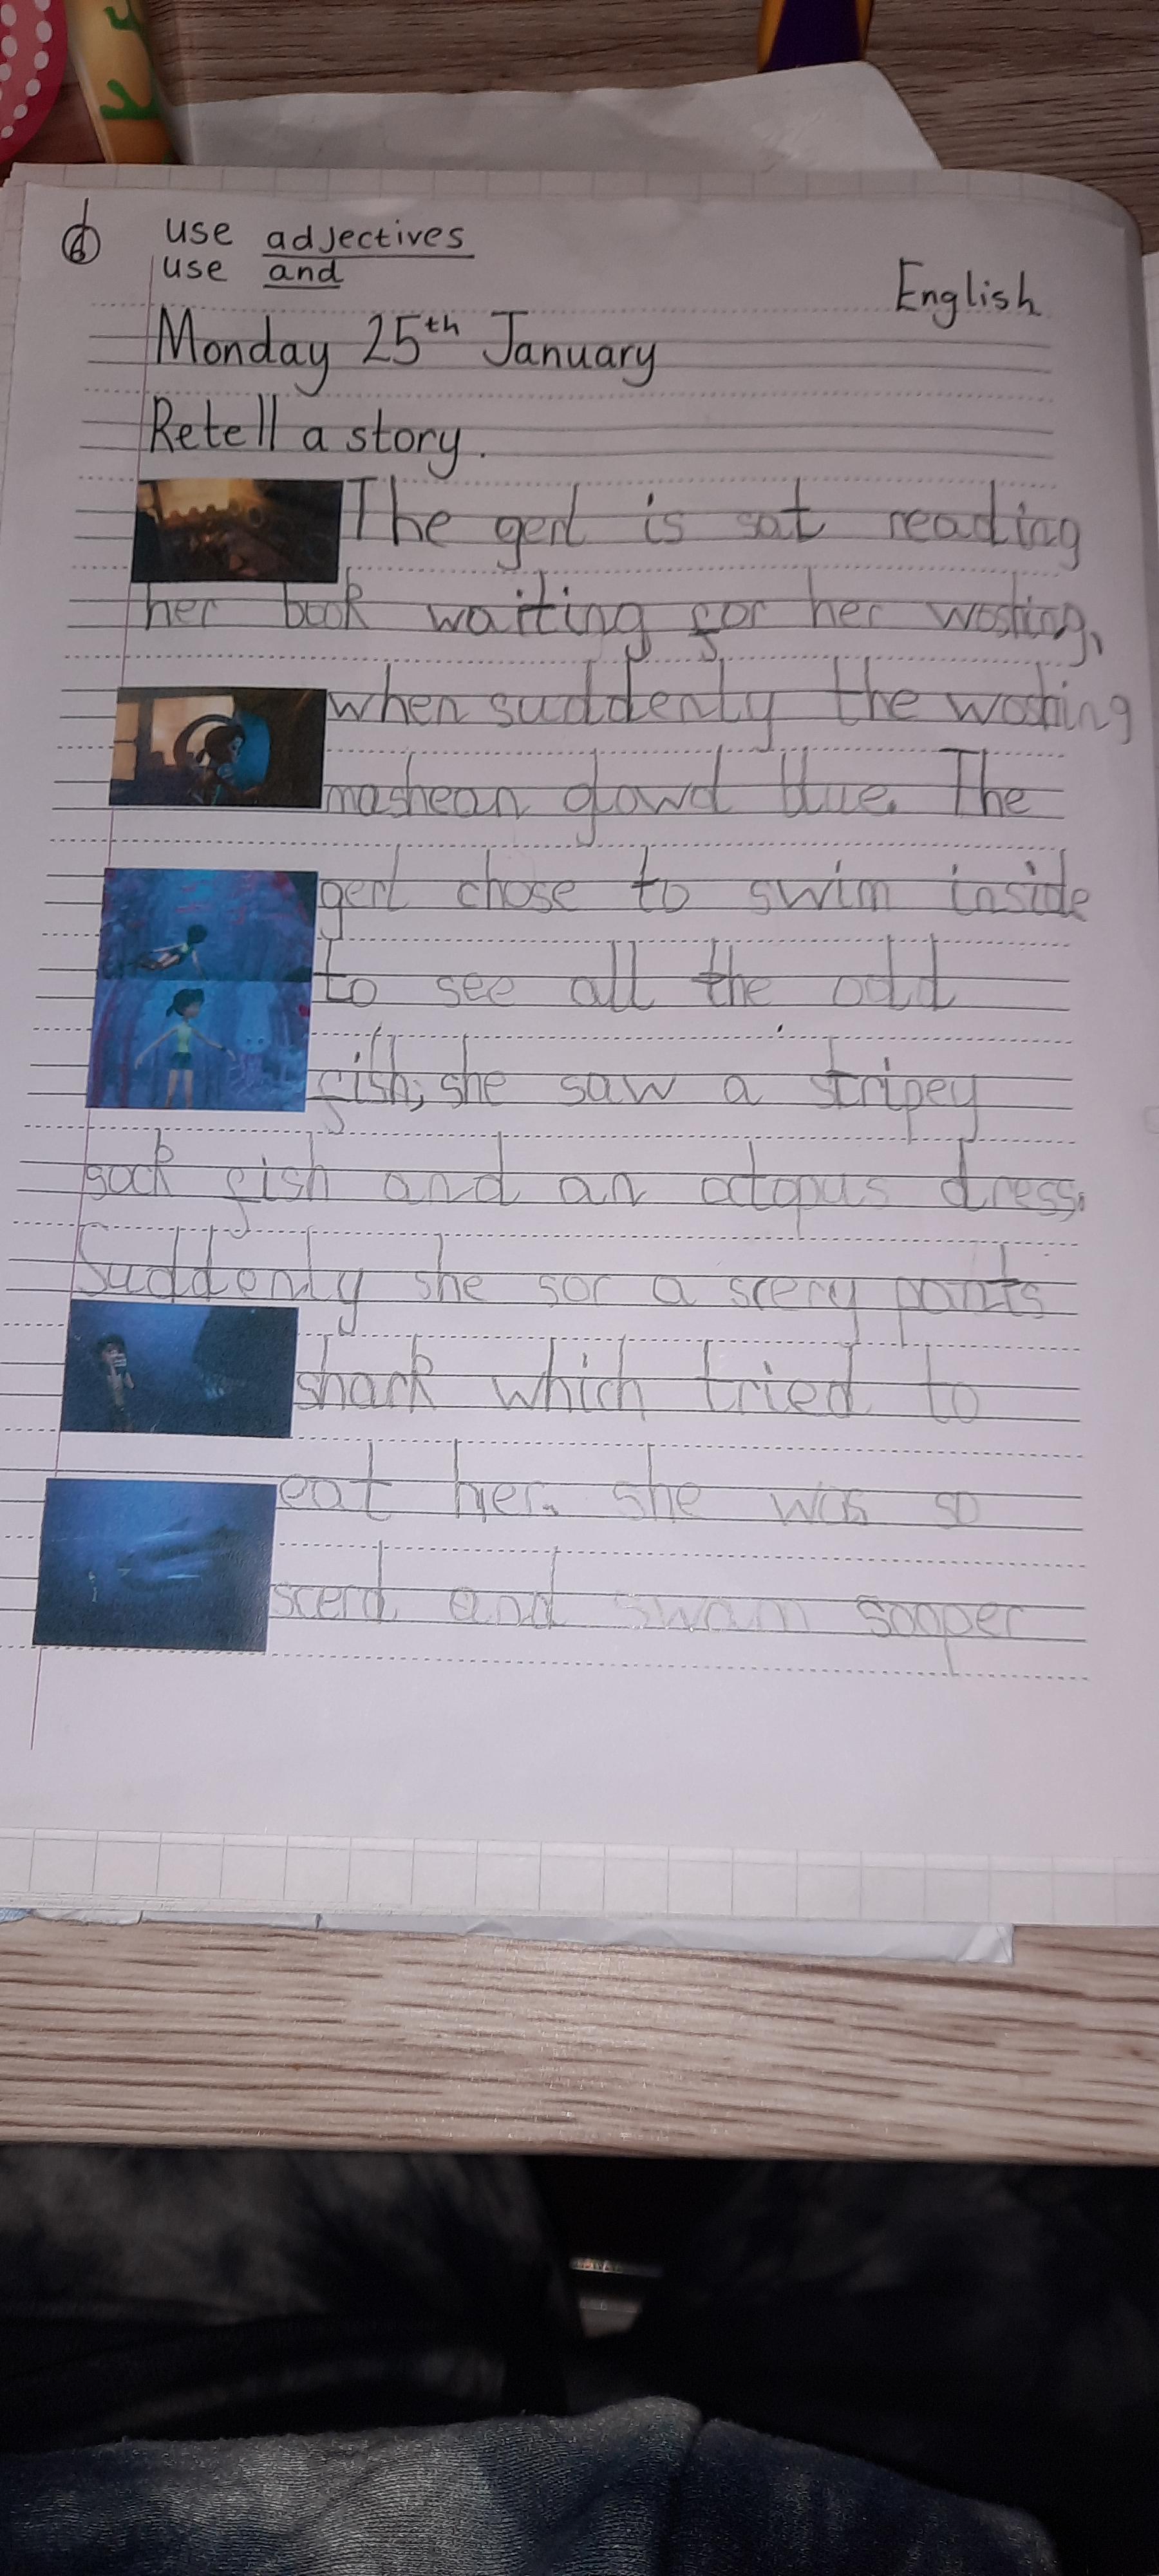 use adjectives
use and
English
Monday 25th January
Retell a story.
The gerl is sat reading
her book waiting for her woshing,
when suddenly the woshing
mashean glowd blue. The
gerl chose to swim inside
to see all the odd
fish, she saw a stripey
sock fish and an octopus dress.
Suddenly she sor a scery pants
shark which tried to
eat her. she was so
scerd and swam sooper